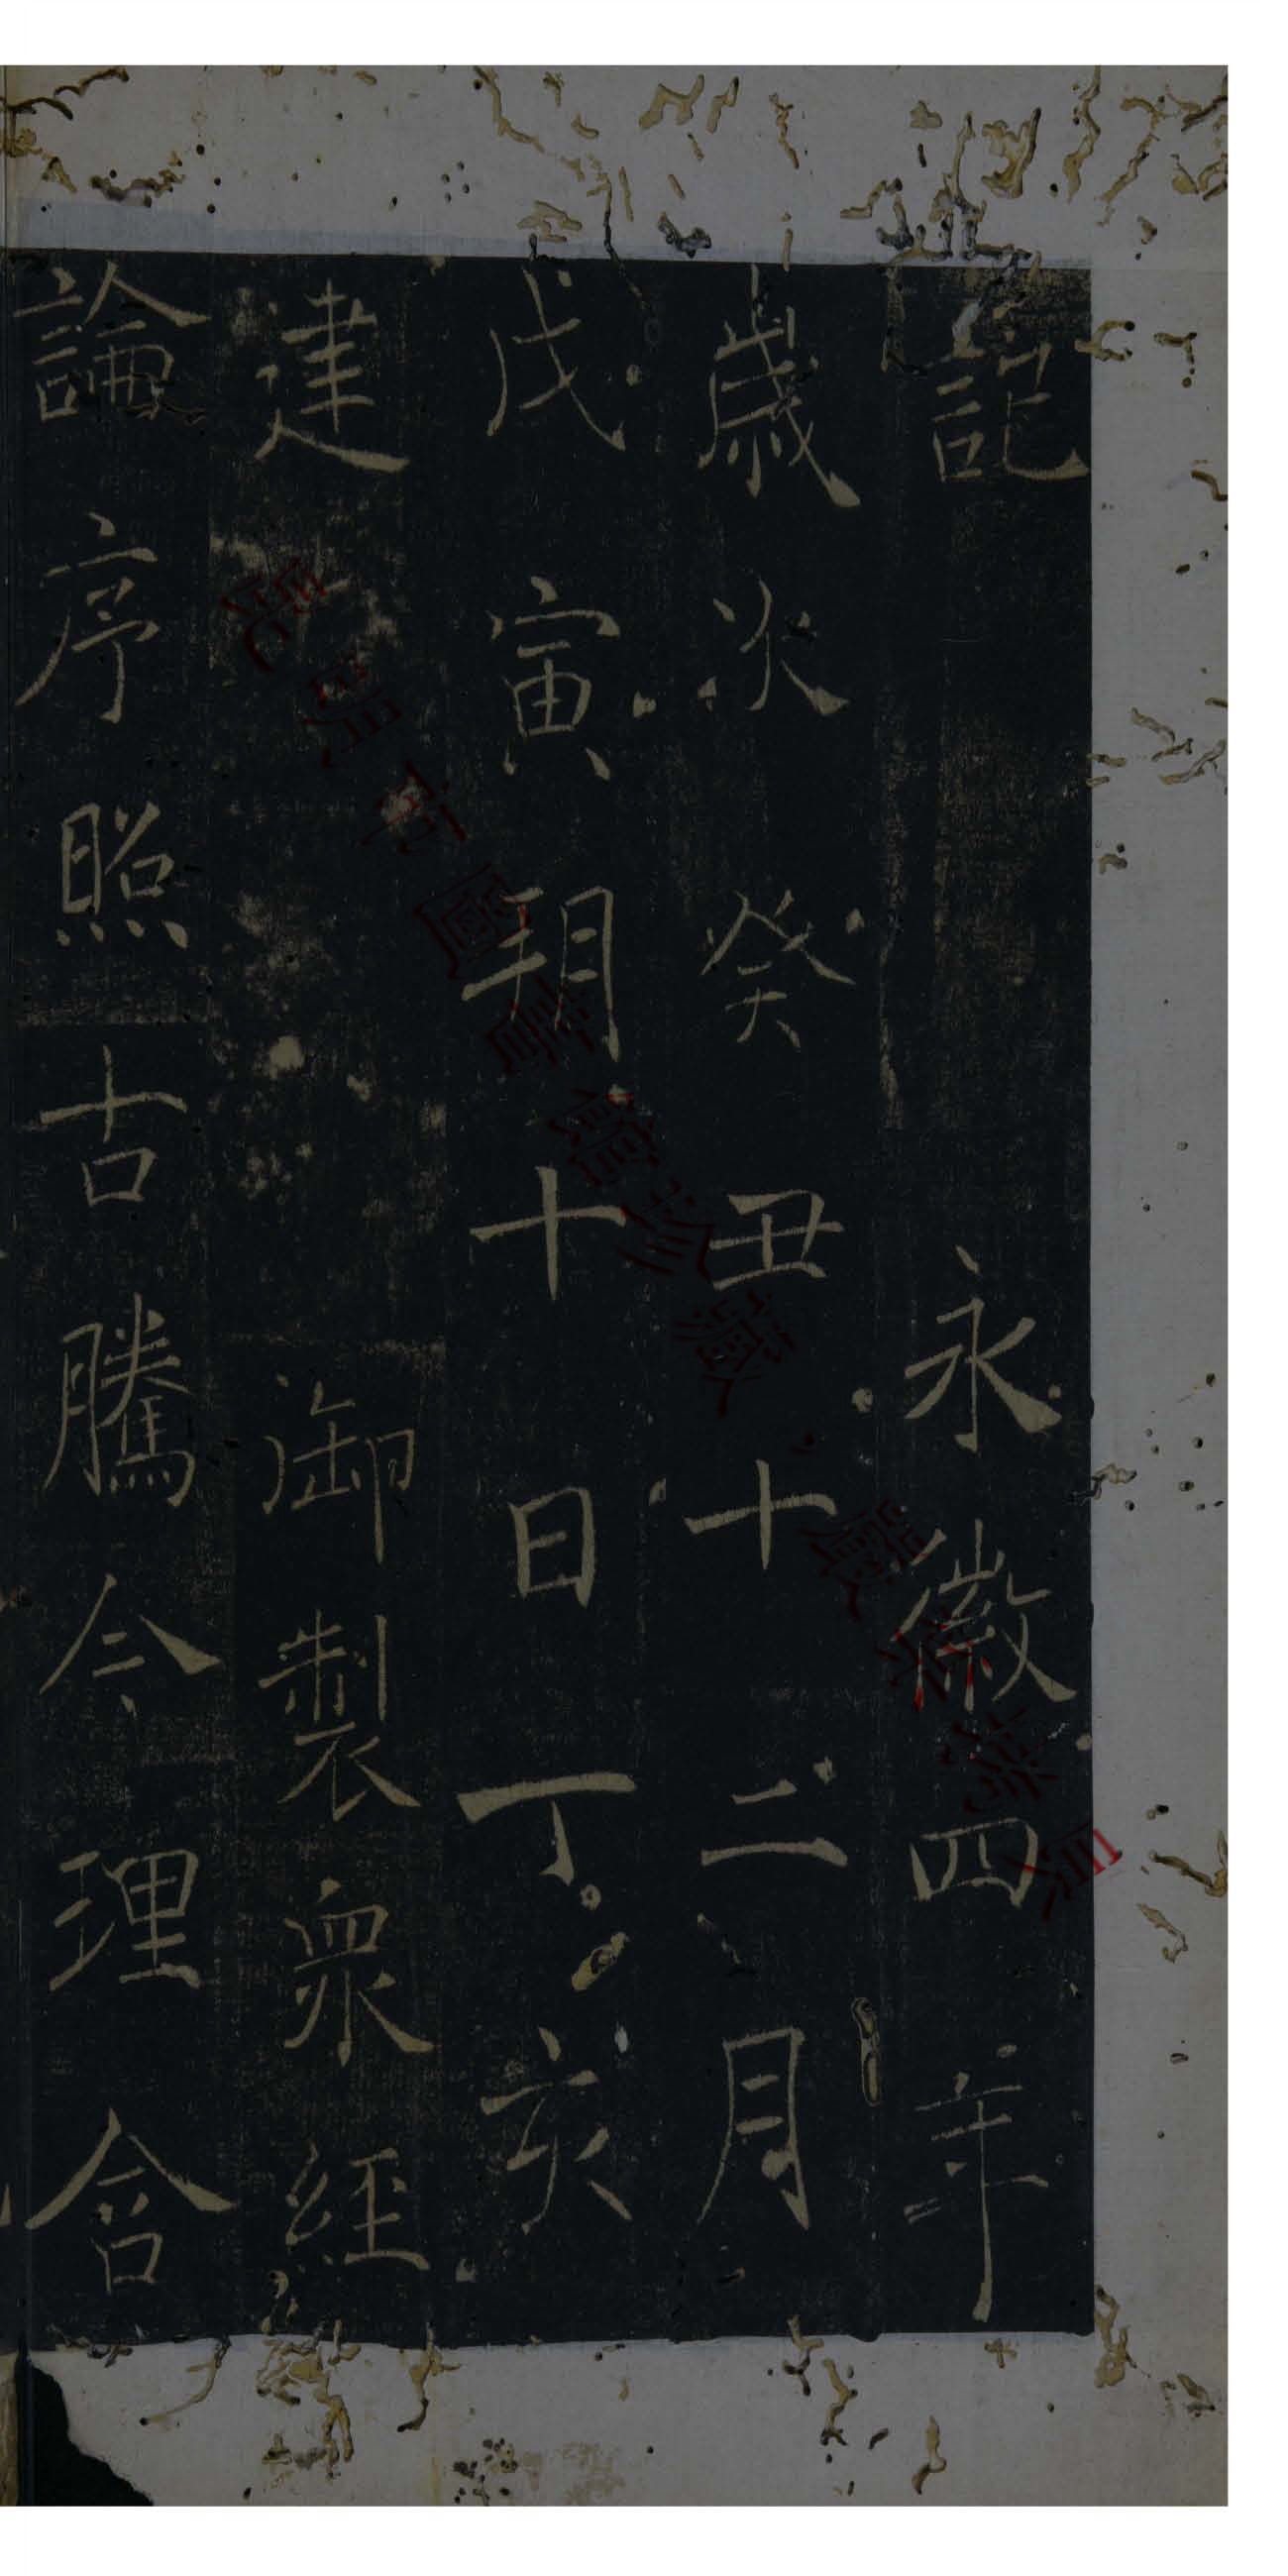 記 永徽四年
歲次癸丑十二月
戊寅朔十日丁亥
建 御製衆經
論序照古騰今理含